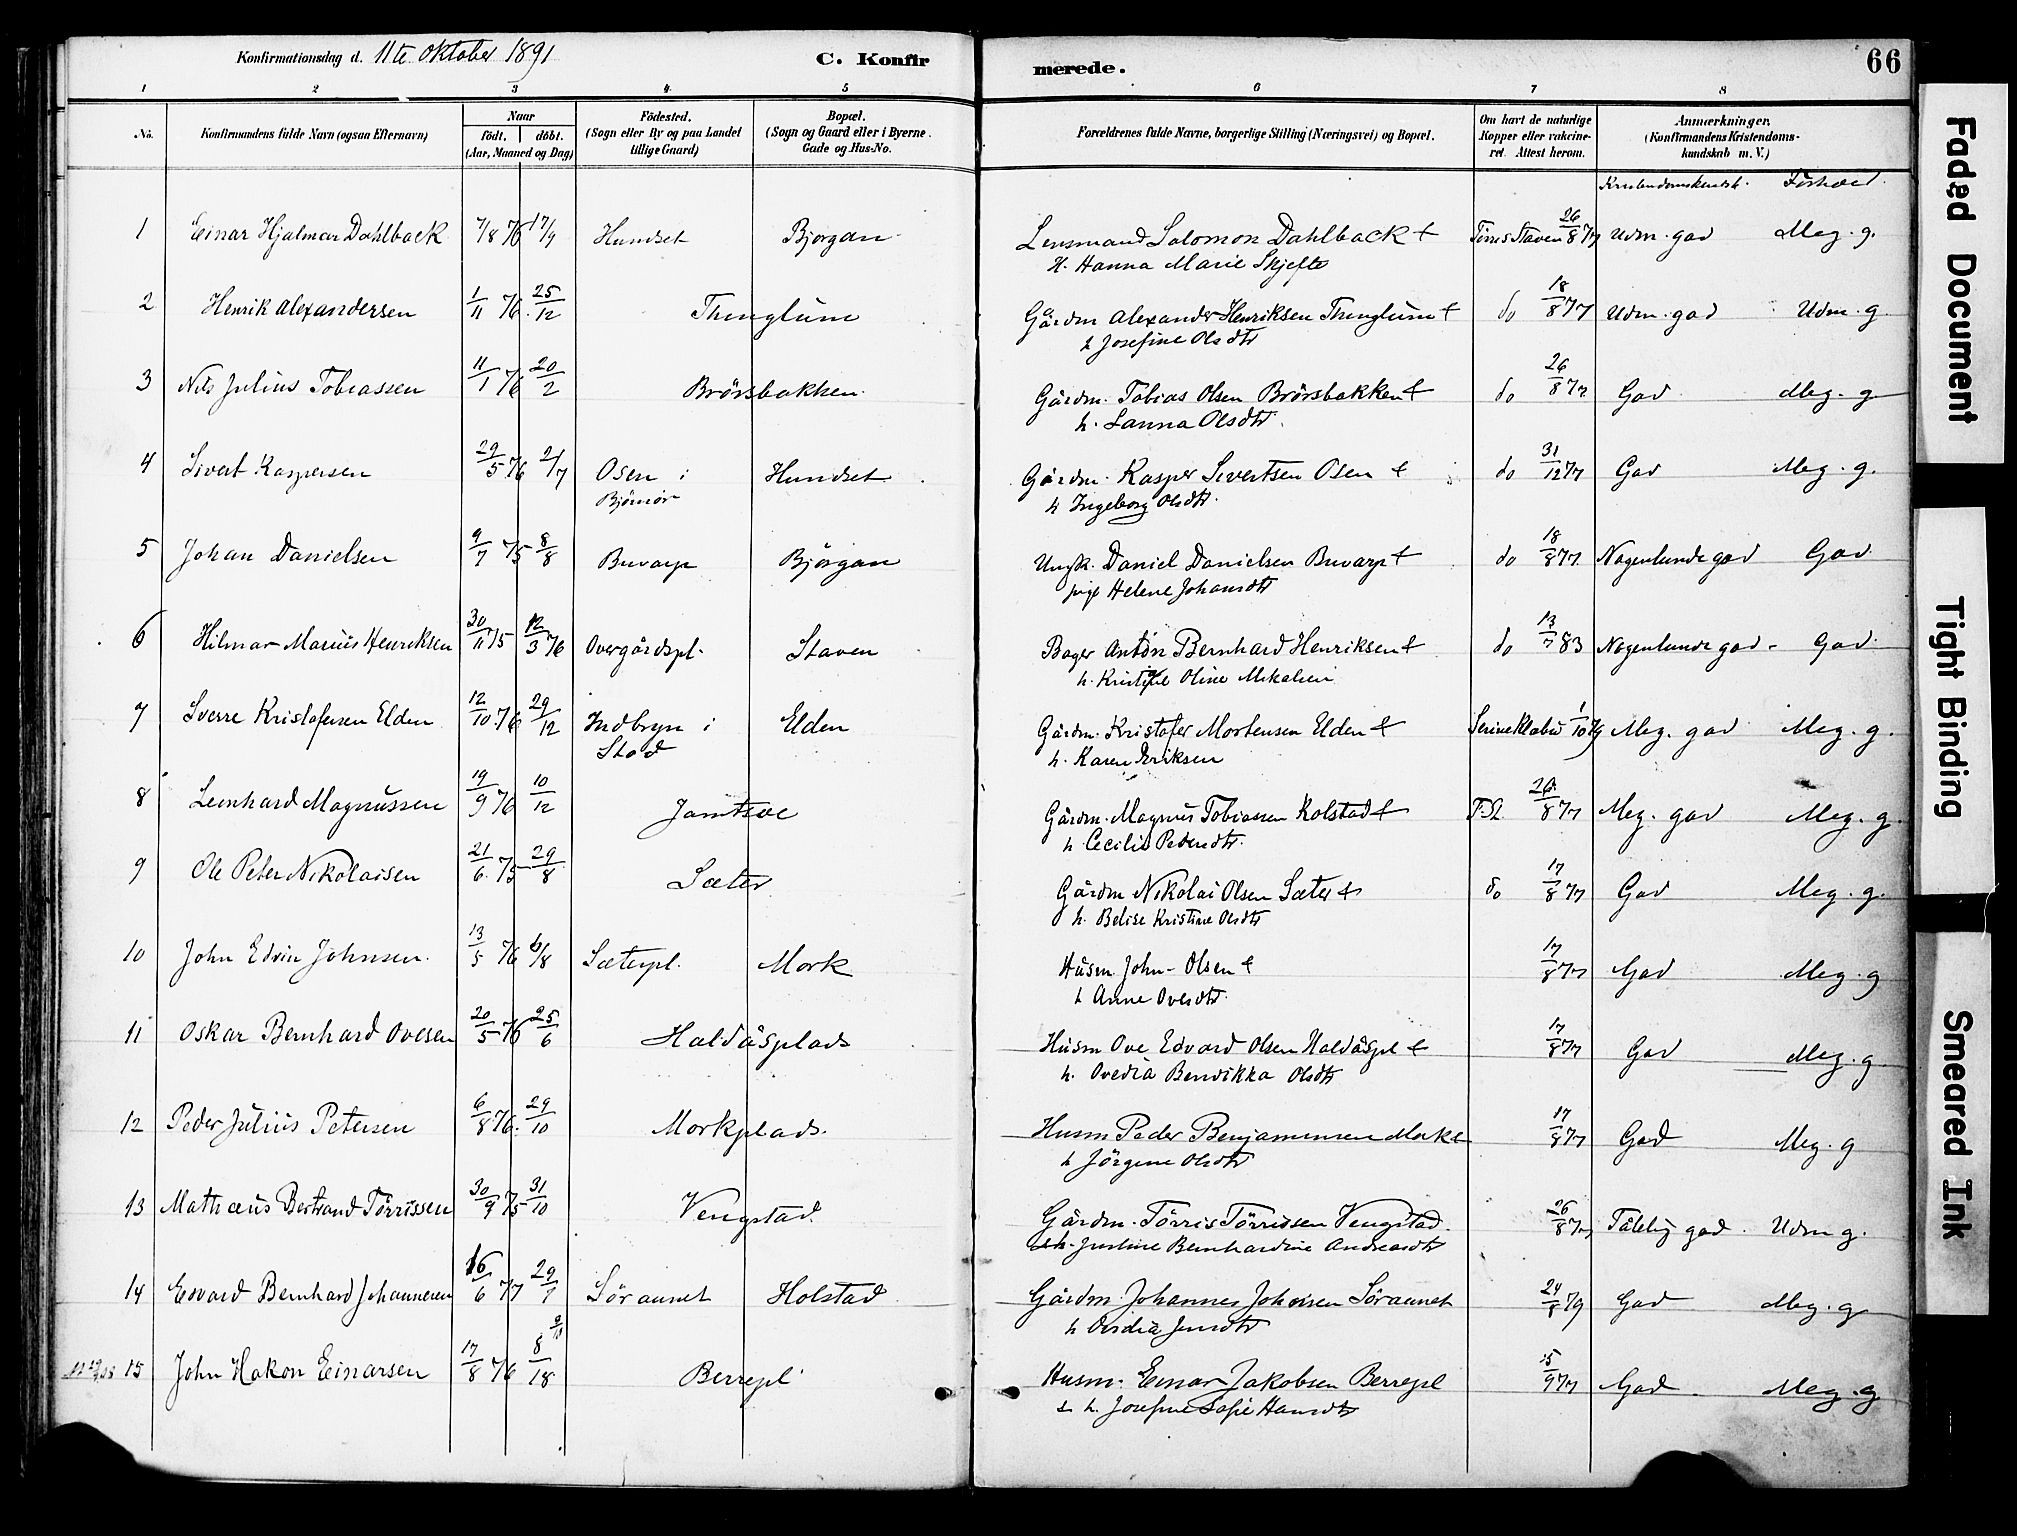 Konfirmationsdag d. 11te Oktober 1891
C. Konfirmerede.
66
1 2 3 4 5 6 7 8
No. Konfirmandens fulde Navn (ogsaa Efternavn) Naar født. døbt. (Aar, Maaned og Dag) Fødested. (Sogn eller By og paa Landet tillige Gaard) Bopæl. (Sogn og Gaard eller i Byerne Gade og Hus-No. Forældrenes fulde Navne, borgerlige Stilling (Næringsvei) og Bopæl. Om havt de naturlige Kopper eller vakcineret. Attest herom. Anmærkninger. (Konfirmandens Kristendomskundskab m. V.)
Kristendomskundsk. Forhold.
1 Einar Hjalmar Dahlback 7/8 76 17/9 Hundset Bjørgan Lensmand Salomon Dahlback + Tørris Staven 26/8 77 Udm. god Meg. g.
H. Hanna Marie Skjefte
2 Henrik Alexandersen 1/11 76 25/12 Thenglum Gårdm Alexander Henriksen Thenglum + do 18/8 77 Udm. god Udm. g
h Josefine Olsdtr
3 Nils Julius Tobiassen 11/1 76 20/2 Brørsbakken Gårdm. Tobias Olsen Brørsbakken + do 26/8 77 God Meg. g
h. Lanna Olsdtr.
4 Sivert Kaspersen 29/5 76 2/7 Osen i Bjørnør Hundset Gårdm. Kasper Sivertsen Osen + do 31/12 77 God Meg. g.
h Ingeborg Olsdtr.
5 Johan Danielsen 9/7 75 8/8 Buvarp Bjørgan Ungk. Daniel Danielsen Buvarp + do 18/8 77 Nogenlunde god God
pige Helene Johansdtr
6 Hilmar Marius Henriksen 30/11 75 12/3 76 Overgårdspl. Staven Bager Anton Bernhard Henriksen + do 13/7 83 Nogenlunde god - God
h. Oline Mikalsen
7 Sverre Kristofersen Elden 12/10 76 29/12 Indbryn i Stod Elden Gårdm. Kristofer Mortensen Elden + 1/10 79 Meg. god Meg. g.
h. Karen Eriksen
8 Leonhard Magnussen 19/9 76 10/12 Jamtsve Gårdm. Magnus Tobiassen Kolstad + T.St. 26/8 77 Meg. god Meg. g.
h. Cecilie Pedersdtr.
9 Ole Peter Nikolaisen 21/6 75 29/8 Sæter Gårdm Nikolai Olsen Sæter + do 17/8 77 God Meg. g.
h. Belise Kristine Olsdtr
10 John Edvin Johnsen. 13/5 76 6/8 Sæterpl. Mork Husm. John Olsen + 17/8 77 God Meg. g
h Anne Ovesdtr.
11 Oskar Bernhard Ovesen 20/5 76 25/6 Haldåsplads Husm Ove Edvard Olsen Haldåspl + 17/8 77 God Meg. g.
h. Ovedia Bendikka Olsdtr
12 Peder Julius Petersen 6/8 76. 29/10 Morkplads. Husm Peder Benjaminsen Mork + 17/8 77 God Meg. g
h Jørgine Olsdtr
13 Mathæus Bertrand Tørrissen 30/9 75 31/10 Vengstad. Gårdm. Tørris Tørrissen Vengstad. 26/8 77 Tålelig god. Udm g.
h. Justine Bernhardine Andreasdtr
14 Edvard Bernhard Johannesen 16/6 77 29/7 Søraunet Holstad Gårdm. Johannes Johnsen Søraunet 24/8 79 God Meg. g
h Jensdtr
15 John Hakon Einarsen 17/8 76 8/18 9/10 Berrepl Husm. Einar Jakobsen Berrepl 15/9 77 God Meg. g
& h. Josefine Sofie Hansdtr
Faded Document
Tight Binding
Smeared Ink